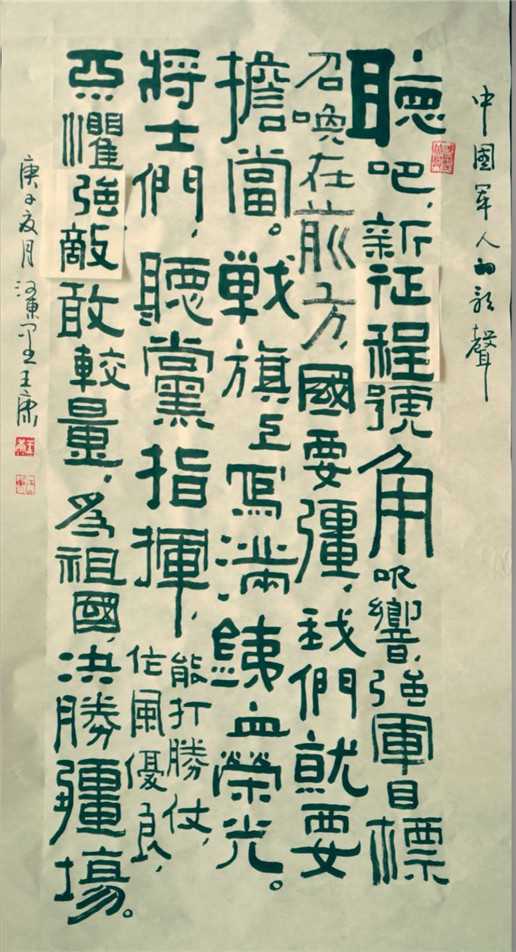 中國軍人的歌聲
聽吧,新征程號角吹響,强軍目標
召唤在前方,國要彊,我們就要
擔當。戰旗上寫滿,鐵血榮光。
將士們,聽黨指揮,能打勝仗,
作風優良,
不懼強敵敢較量,為祖國,決勝疆場。
庚子夏月 河東 王康